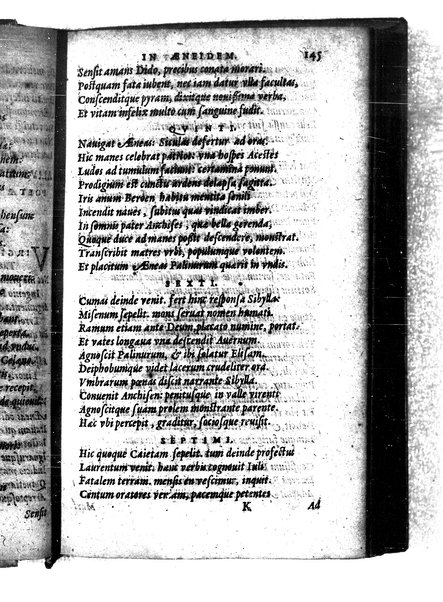 IN ÆNEIDEM. 145
Sensit amans Dido, precibus conata morari.
Postquam fata iubent, nec iam datur vlla facultas,
Conscenditque pyram, dixitque nouissima verba,
Et vitam infelix multo cum sanguine fudit.
QVINTI.
Nauigat Æneas: Siculas defertur ad oras:
Hic manes celebrat patrios: vna hospes Acestes
Ludos ad tumulum faciunt: certamina ponunt.
Prodigium est cunctis ardens delapsa sagitta.
Iris anum Beroen habitu mentita senili
Incendit naues, subitus quas vindicat imber.
In somnis pater Anchises, quæ bella gerenda,
Quoque duce ad manes possit descendere, monstrat.
Transcribit matres vrbi, populumque volentem.
Et placitum Æneas Palinurum quærit in vndis.
SEXTI.
Cumas deinde venit. fert hinc responsa Sibyllæ.
Misenum sepelit. mons seruat nomen humati.
Ramum etiam ante Deum placato numine, portat.
Et vates longæua vna descendit Auernum.
Agnoscit Palinurum, & ibi solatur Elisam,
Deiphobumque videt lacerum crudeliter ora.
Vmbrarum pœnas discit narrante Sibylla.
Conuenit Anchisen: penitusque in valle virenti
Agnoscitque suam prolem monstrante parente.
Hæc vbi percepit, graditur, sociosque reuisit.
SEPTIMI.
Hic quoque Caietam sepelit. tum deinde profectus
Laurentum venit. hanc verbis cognouit Iuli
Fatalem terram. mensis en vescimur, inquit.
Centum oratores veniam, pacemque petentes
K Ad
Sensit